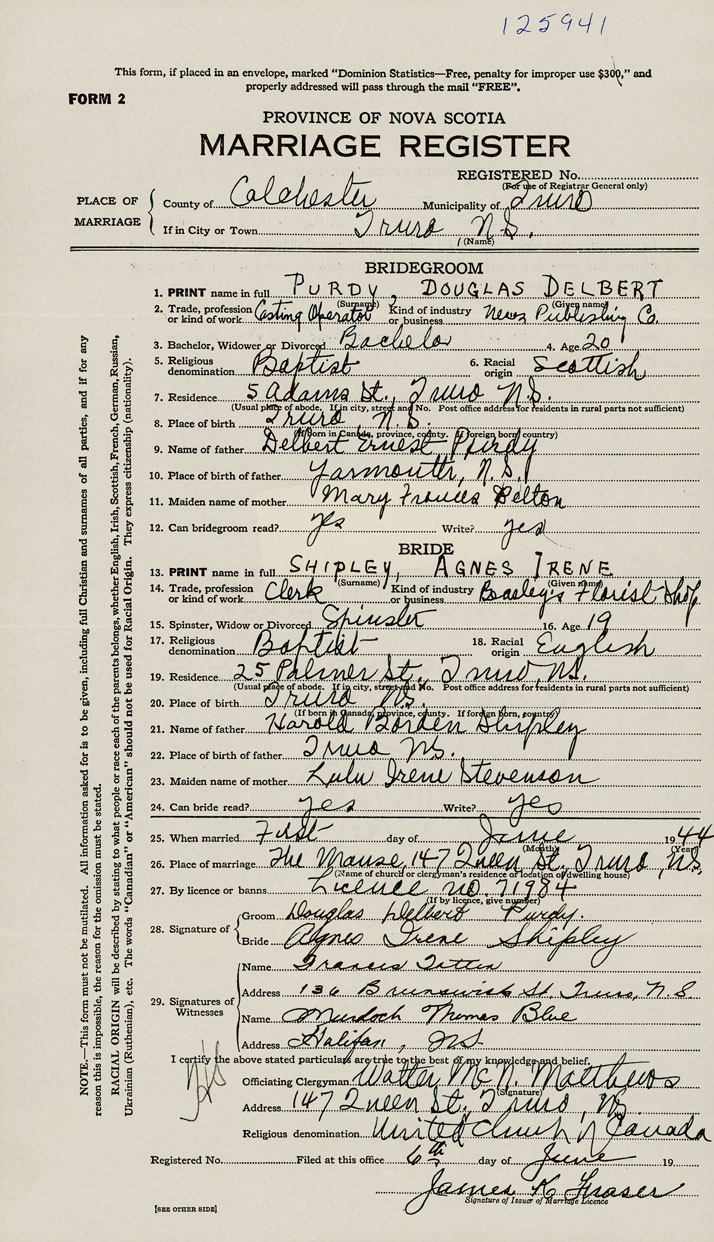 125941
This form, if placed in an envelope, marked "Dominion Statistics—Free, penalty for improper use $300," and
properly addressed will pass through the mail "FREE".
FORM 2
PROVINCE OF NOVA SCOTIA
MARRIAGE REGISTER
REGISTERED No.
(For use of Registrar General only)
PLACE OF MARRIAGE
County of Colchester Municipality of Truro
If in City or Town Truro N.S.
(Name)
BRIDEGROOM
1. PRINT name in full PURDY, DOUGLAS DELBERT
(Surname) (Given name)
2. Trade, profession or kind of work Casting Operator Kind of industry or business News Publishing Co.
3. Bachelor, Widower or Divorced Bachelor 4. Age 20
5. Religious denomination Baptist 6. Racial origin Scottish
7. Residence 5 Adams St., Truro N.S.
(Usual place of abode. If in city, street and No. Post office address for residents in rural parts not sufficient)
8. Place of birth Truro N.S.
(If born in Canada, province, county. If foreign born, country)
9. Name of father Delbert Ernest Purdy
10. Place of birth of father Yarmouth, N.S.
11. Maiden name of mother Mary Frances Belton
12. Can bridegroom read? yes Write? yes
BRIDE
13. PRINT name in full SHIPLEY, AGNES IRENE
(Surname) (Given name)
14. Trade, profession or kind of work Clerk Kind of industry or business Beasley's Florist Shop
15. Spinster, Widow or Divorced Spinster 16. Age 19
17. Religious denomination Baptist 18. Racial origin English
19. Residence 25 Palmer St., Truro, N.S.
(Usual place of abode. If in city, street and No. Post office address for residents in rural parts not sufficient)
20. Place of birth Truro N.S.
(If born in Canada, province, county. If foreign born, country)
21. Name of father Harold Borden Shipley
22. Place of birth of father Truro N.S.
23. Maiden name of mother Lulu Irene Stevenson
24. Can bride read? yes Write? yes
25. When married First day of June 1944
(Month) (Year)
26. Place of marriage The Manse, 147 Queen St. Truro, N.S.
(Name of church or clergyman's residence or location of dwelling house)
27. By licence or banns Licence no. 71984
(If by licence, give number)
28. Signature of
Groom Douglas Delbert Purdy.
Bride Agnes Irene Shipley
29. Signatures of Witnesses
Name Francis Totten
Address 136 Brunswick St. Truro, N.S.
Name Murdoch Thomas Blue
Address Halifax, N.S.
I certify the above stated particulars are true to the best of my knowledge and belief.
Officiating Clergyman Walter McN. Matthews
(Signature)
Address 147 Queen St. Truro, N.S.
Religious denomination United Church of Canada
Registered No. Filed at this office 6th day of June 19
James K Fraser
Signature of Issuer of Marriage Licence
[SEE OTHER SIDE]
NOTE.—This form must not be mutilated. All information asked for is to be given, including full Christian and surnames of all parties, and if for any
reason this is impossible, the reason for the omission must be stated.
RACIAL ORIGIN will be described by stating to what people or race each of the parents belongs, whether English, Irish, Scottish, French, German, Russian,
Ukrainian (Ruthenian), etc. The words "Canadian" or "American" should not be used for Racial Origin. They express citizenship (nationality).